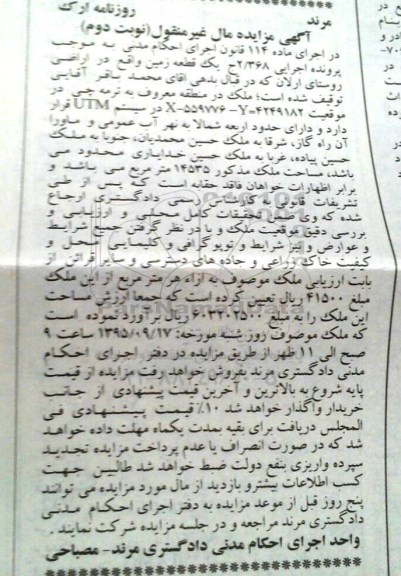 مرند
روزنامه ارک
آگهی مزایده مال غیرمنقول(نوبت دوم)
در اجرای ماده ۱۱۴ قانون اجرای احکام مدنی به موجب
پرونده اجرایی ۲/۳۶۸ح یک قطعه زمین واقع در اراضی
روستای ارلان که در قبال بدهی آقای محمد باقر آقایی
توقیف شده است؛ ملک در منطقه معروف به نرمه چی در
موقعیت X-۵۵۹۷۷۶ -Y=۴۲۴۹۱۸۲ در سیستم UTM قرار
دارد و دارای حدود اربعه شمالا به نهر آب عمومی و ماورا
آن راه گاز، شرقا به ملک حسین محمدیان، جنوبا به ملک
حسین پیاده، غربا به ملک حسین خدایاری محدود می
باشد، مساحت ملک مذکور ۱۴۵۳۵ متر مربع می باشد و
برابر اظهارات خواهان فاقد حقابه است که پس از طی
تشریفات قانونی به کارشناس رسمی دادگستری ارجاع
شده که وی ضمن تحقیقات کامل محلی و ارزیابی و
بررسی دقیق موقعیت ملک و با در نظر گرفتن جمیع شرایط
و عوارض و نیز شرایط و توپوگرافی و کلیمایی محل و
کیفیت خاک زراعی و جاده های دسترسی و سایر قرائن از
بابت ارزیابی ملک موصوف به ازاء هر متر مربع از این ملک
مبلغ ۴۱۵۰۰ ریال تعیین کرده است که جمعا ارزش مساحت
این ملک را به مبلغ ۶۰۳۲۰۲۵۰۰ ریال برآورد نموده است
که ملک موصوف روز شنبه مورخه: ۱۳۹۵/۰۹/۱۷ ساعت ۹
صبح الی ۱۱ ظهر از طریق مزایده در دفتر اجرای احکام
مدنی دادگستری مرند بفروش خواهد رفت مزایده از قیمت
پایه شروع به بالاترین و آخرین قیمت پیشنهادی از جانب
خریدار واگذار خواهد شد ۱۰٪ قیمت پیشنهادی فی
المجلس دریافت برای بقیه بمدت یکماه مهلت داده خواهد
شد که در صورت انصراف یا عدم پرداخت مزایده تجدید
سپرده واریزی بنفع دولت ضبط خواهد شد طالبین جهت
کسب اطلاعات بیشترو بازدید از مال مورد مزایده می توانند
پنج روز قبل از موعد مزایده به دفتر اجرای احکام مدنی
دادگستری مرند مراجعه و در جلسه مزایده شرکت نمایند .
واحد اجرای احکام مدنی دادگستری مرند- مصباحی